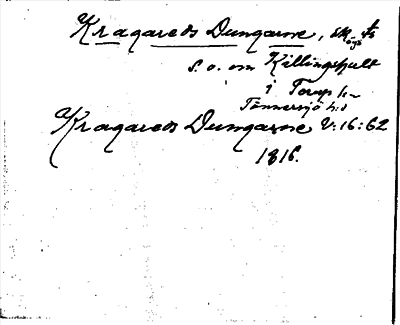 Kragareds Dungarne, sk
s. o. om Killingehult
i Torup sn
Tönnersjö hd
Kragareds Dungarne V:16:62
1816.